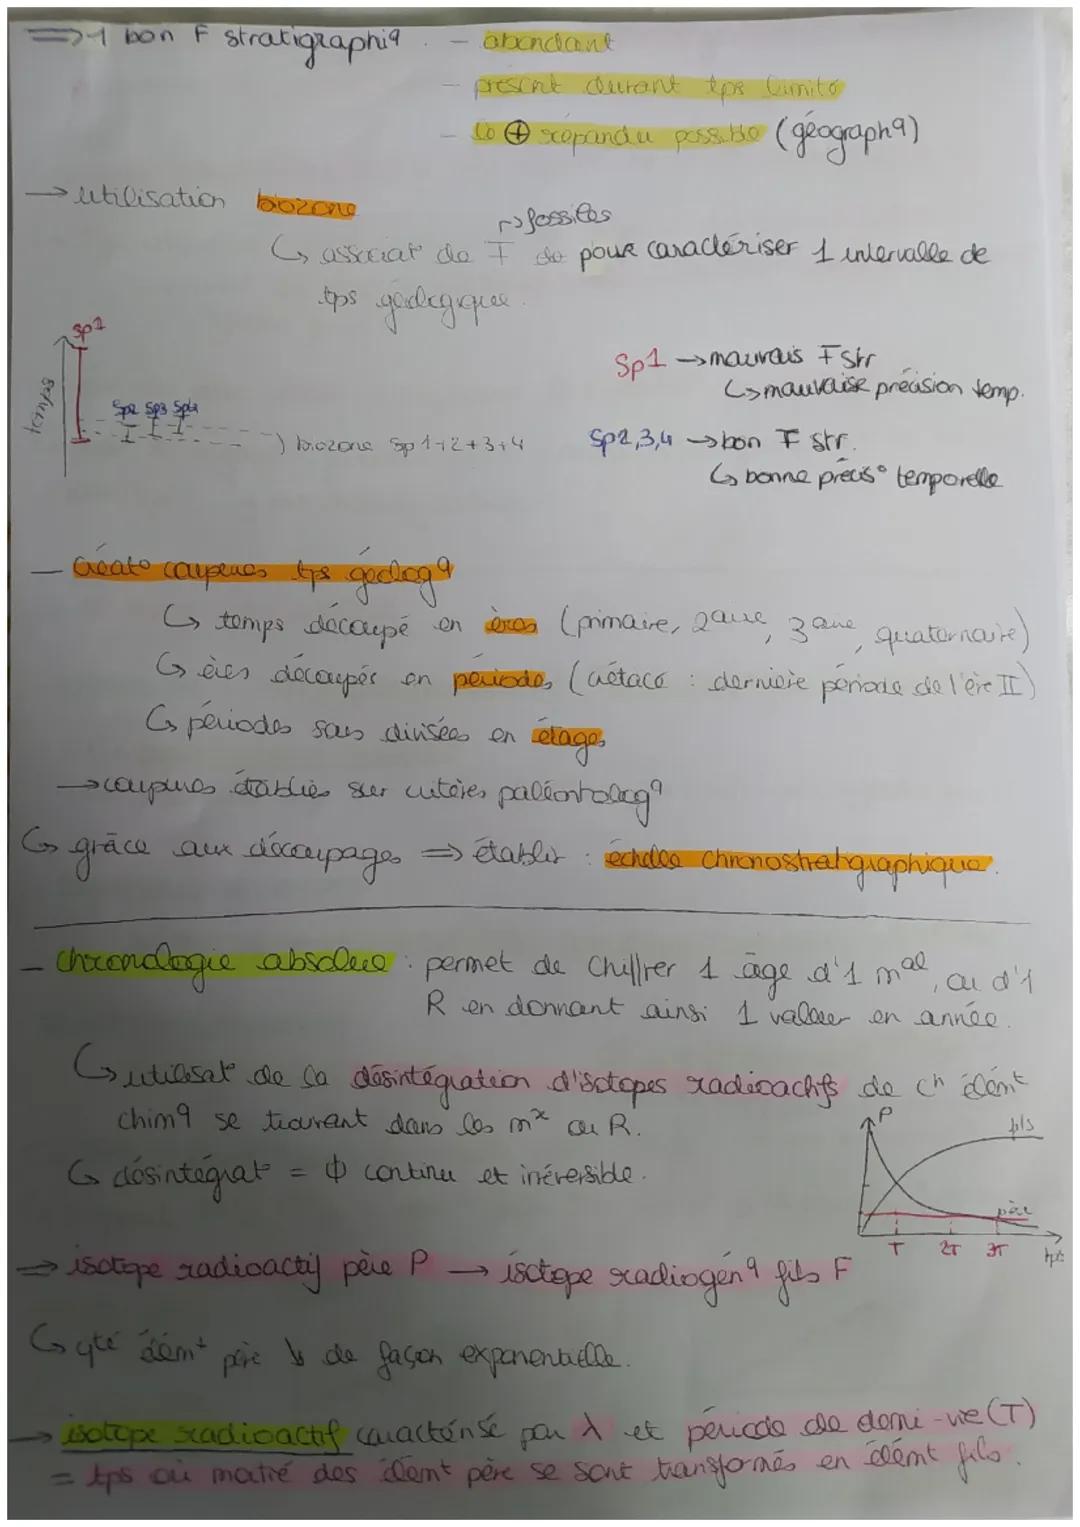 ⇒ 1 bon F stratigraphiq : - abondant
- présent durant tps limité
- le ⊕ répandu possible (géographq)
→ utilisation biozone
↳ fossiles
↳ associat° de F de pour caractériser 1 intervalle de
tps géologique.
Sp1
Sp1 → mauvais F str
↳ mauvaise précision temp.
strates
Sp2 Sp3 Sp4
) biozone Sp 1+2+3+4
Sp2,3,4 → bon F str.
↳ bonne précis° temporelle
- créat° coupures tps géologq
↳ temps découpé en ères (primaire, 2aire, 3aire, quaternaire)
↳ ères découpés en périodes (crétacé : dernière période de l'ère II)
↳ périodes sous divisées en étages
→ coupures établies sur critères paléontologq
↳ grâce aux découpages ⇒ établir : échelle chronostratigraphique.
- chronologie absolue : permet de chiffrer 1 âge d'1 mal, ou d'1
R en donnant ainsi 1 valeur en année.
↳ utilisat° de la désintégration d'isotopes radioactifs de cn élémt
chimq se trouvant dans les mx ou R.
↳ désintégrat° = φ continu et irréversible.
P
fils
père
T 2T 3T tps
⇒ isotope radioactif père P → isotope radiogénq fils F
↳ qté élémt père ↘ de façon exponentielle.
→ isotope radioactif caractérisé par λ et période de demi-vie (T)
= tps où moitié des élémt père se sont transformés en élémt fils.